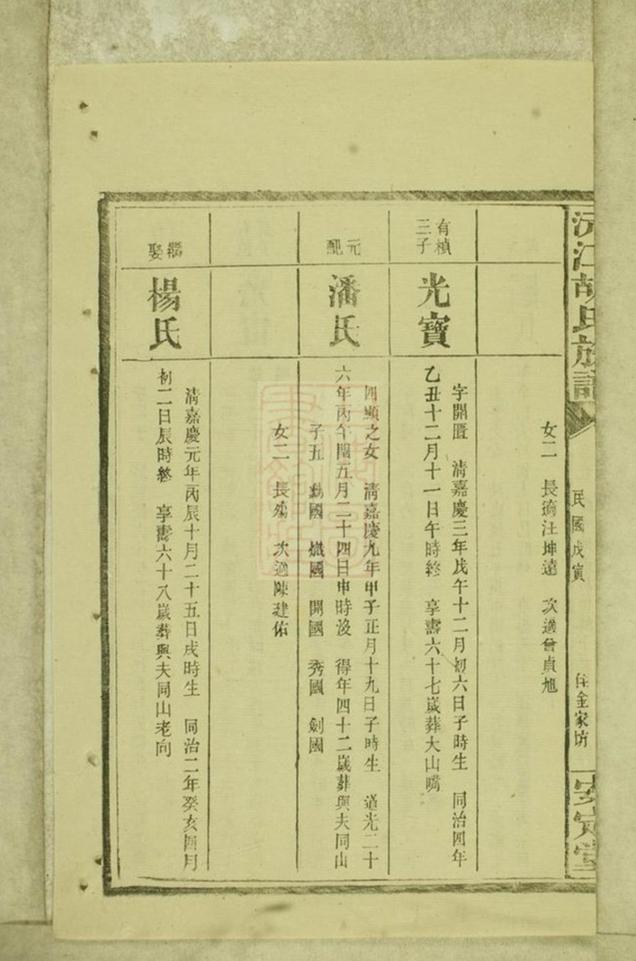 沅江胡氏族譜
民國戊寅
住金家坊
安定堂
女二 長適汪坤遠 次適曾貞旭
有楨
三子
光寶
字開匱 清嘉慶三年戊午十二月初六日子時生 同治四年
乙丑十二月十一日午時終 享壽六十七歲葬大山嘴
元
配
潘氏
四顯之女 清嘉慶九年甲子正月十九日子時生 道光二十
六年丙午閏五月二十四日申時沒 得年四十二歲葬與夫同山
子五 勳國 熾國 開國 秀國 劍國
女二 長殤 次適陳建佑
繼
娶
楊氏
清嘉慶元年丙辰十月二十五日戌時生 同治二年癸亥四月
初二日辰時終 享壽六十八歲葬與夫同山老向